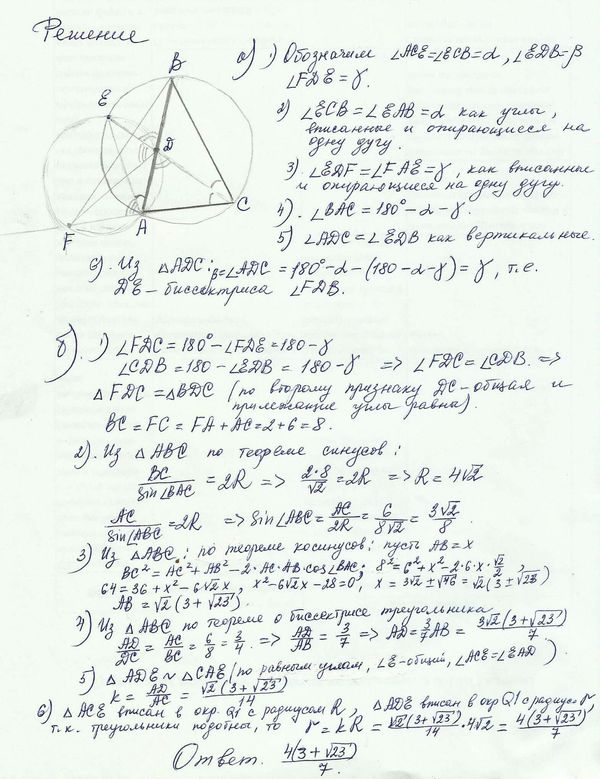 Решение
B
E
D
C
A
F
а) 1) Обозначим ∠ACE=∠ECB=α, ∠EDB=β
∠FDE=γ.
2) ∠ECB=∠EAB=α как углы,
вписанные и опирающиеся на
одну дугу.
3) ∠EDF=∠FAE=γ, как вписанные
и опирающиеся на одну дугу.
4). ∠BAC=180°-α-γ.
5) ∠ADC=∠EDB как вертикальные.
6). Из △ADC: β=∠ADC=180°-α-(180-α-γ)=γ, т.е.
DE-биссектриса ∠FDB.
б). 1) ∠FDC=180°-∠FDE=180-γ
∠CDB=180-∠EDB=180-γ => ∠FDC=∠CDB. =>
△FDC=△BDC (по второму признаку DC-общая и
прилежащие углы равны).
BC=FC=FA+AC=2+6=8.
2). Из △ABC по теореме синусов:
BC/sin∠BAC=2R => 2·8/√2=2R => R=4√2
AC/sin∠ABC=2R => sin∠ABC=AC/2R=6/8√2=3√2/8.
3) Из △ABC: по теореме косинусов: пусть AB=x
BC²=AC²+AB²-2·AC·AB·cos∠BAC; 8²=6²+x²-2·6·x·√2/2,
64=36+x²-6√2x, x²-6√2x-28=0, x=3√2±√46=√2(3±√23)
AB=√2(3+√23).
4) Из △ABC по теореме о биссектрисе треугольника
AD/DC=AC/BC=6/8=3/4. => AD/AB=3/7 => AD=3/7AB=3√2(3+√23)/7.
5) △ADE~△CAE (по равным углам, ∠E-общий, ∠ACE=∠EAD)
k=AD/AC=√2(3+√23)/14
6) △ACE вписан в окр. Q1 с радиусом R, △ADE вписан в окр Q1 с радиус r,
т.к. треугольники подобны, то r=kR=√2(3+√23)/14·4√2=4(3+√23)/7
Ответ. 4(3+√23)/7.